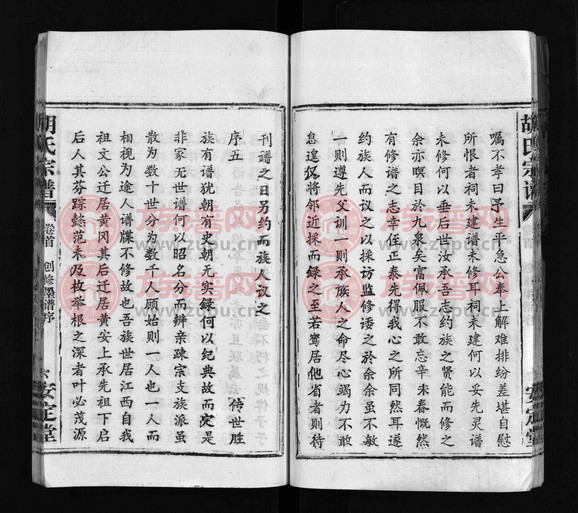 胡氏宗譜
嘱不孝曰予生平急公奉上解难排纷差堪自慰
所恨者祠未建谱未修耳祠未建何以妥先灵谱
未修何以垂后世汝承吾志约族之贤能而修之
余亦瞑目於九泉矣富佩服不敢忘辛未春慨然
有修谱之志幸侄正泰先得我心之所同然耳遂
约族人而议之以採访监修诿之於余余虽不敏
一则遵先父训一则承族人之命尽心竭力不敢
怠遑仅将邻近採而录之至若寓居他省者则待
安定堂
刊谱之日另约而族人议之
序五 传世胜
族有谱犹朝有史朝无实録何以纪典故而定是
非家无世谱何以昭名分而辨亲疎宗支族派虽
散为数十世分为数千人顾始则一人也一人而
相视为途人谱牒不修故也吾族世居江西自我
祖文公迁居黄冈其后迁居黄安上承先祖下启
后人其芬踪懿范未及枚举根之深者叶必茂源
胡氏宗譜
卷首 创修墨谱序
六 安定堂
族谱网